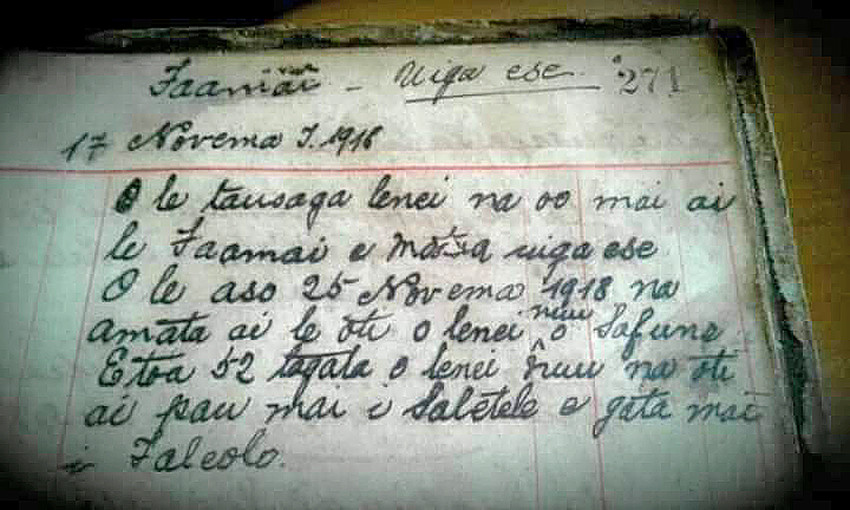 Faamai - Uiga ese. 271
17 Novema I. 1918
O le tausaga lenei na oo mai ai
le Faamai e matua uiga ese
O le aso 25 Novema 1918 na
amata ai le oti o lenei nuu o Safune
E toa 52 tagata o lenei nuu na oti
ai pau mai i Saletele e gata mai
i Faleolo.